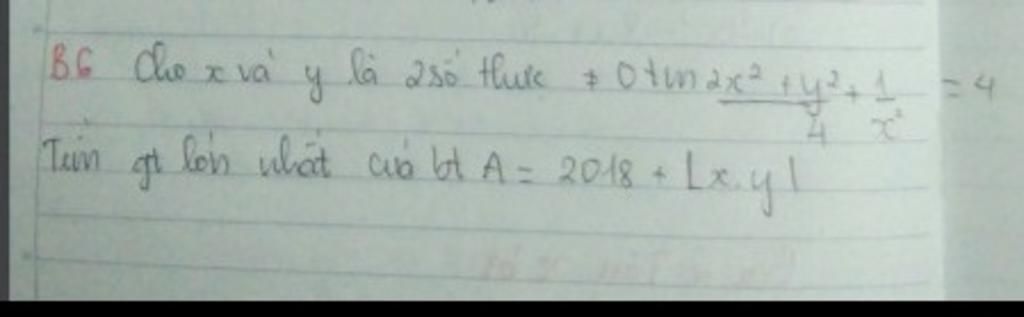 B6 Cho x và y là 2 số thực ≠ 0 tm 2x² + y²/4 + 1/x² = 4
Tìm gt lớn nhất của bt A = 2018 + |x.y|